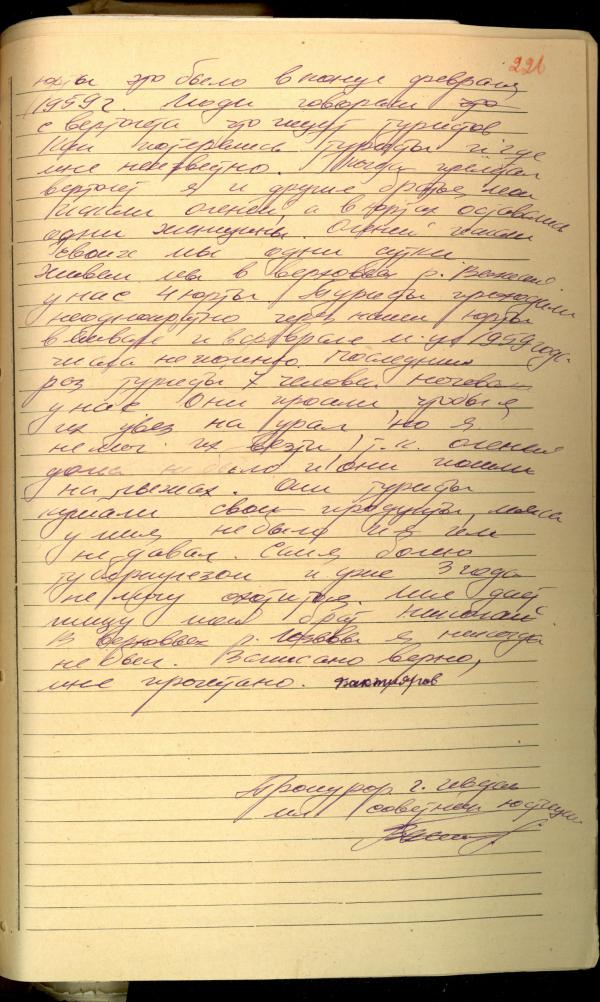 221
юрты это было в конце февраля
1959 г. Люди говорили это
с вертолета что ищут туристов
Где потерялись туристы и где
мне неизвестно. Когда
вертолет я и другие братья мои
искали оленей, а в юртах оставались
одни женщины. Оленей искали
своих мы одни сутки.
Живем мы в верховьях р.
у нас 4 юрты. Туристы проходили
неоднократно через наши юрты
в январе и в феврале м-це 1959 года
числа не помню. Последний
раз туристы 7 человек ночевали
у нас. Они просили чтобы я
их увез на Урал, но я
не мог их везти, т.к. оленей
дома не было и они пошли
на лыжах. Они туристы
кушали свои продукты, мяса
у меня не было и я им
не давал. Сам я болею
туберкулезом и уже 3 года
не могу охотится. Мне дает
пищу мой брат Николай.
В верховьях р. Лозьвы я никогда
не был. Записано верно,
мне прочитано. Бахтияров
Прокурор г. Ивдель
мл. советник юстиции